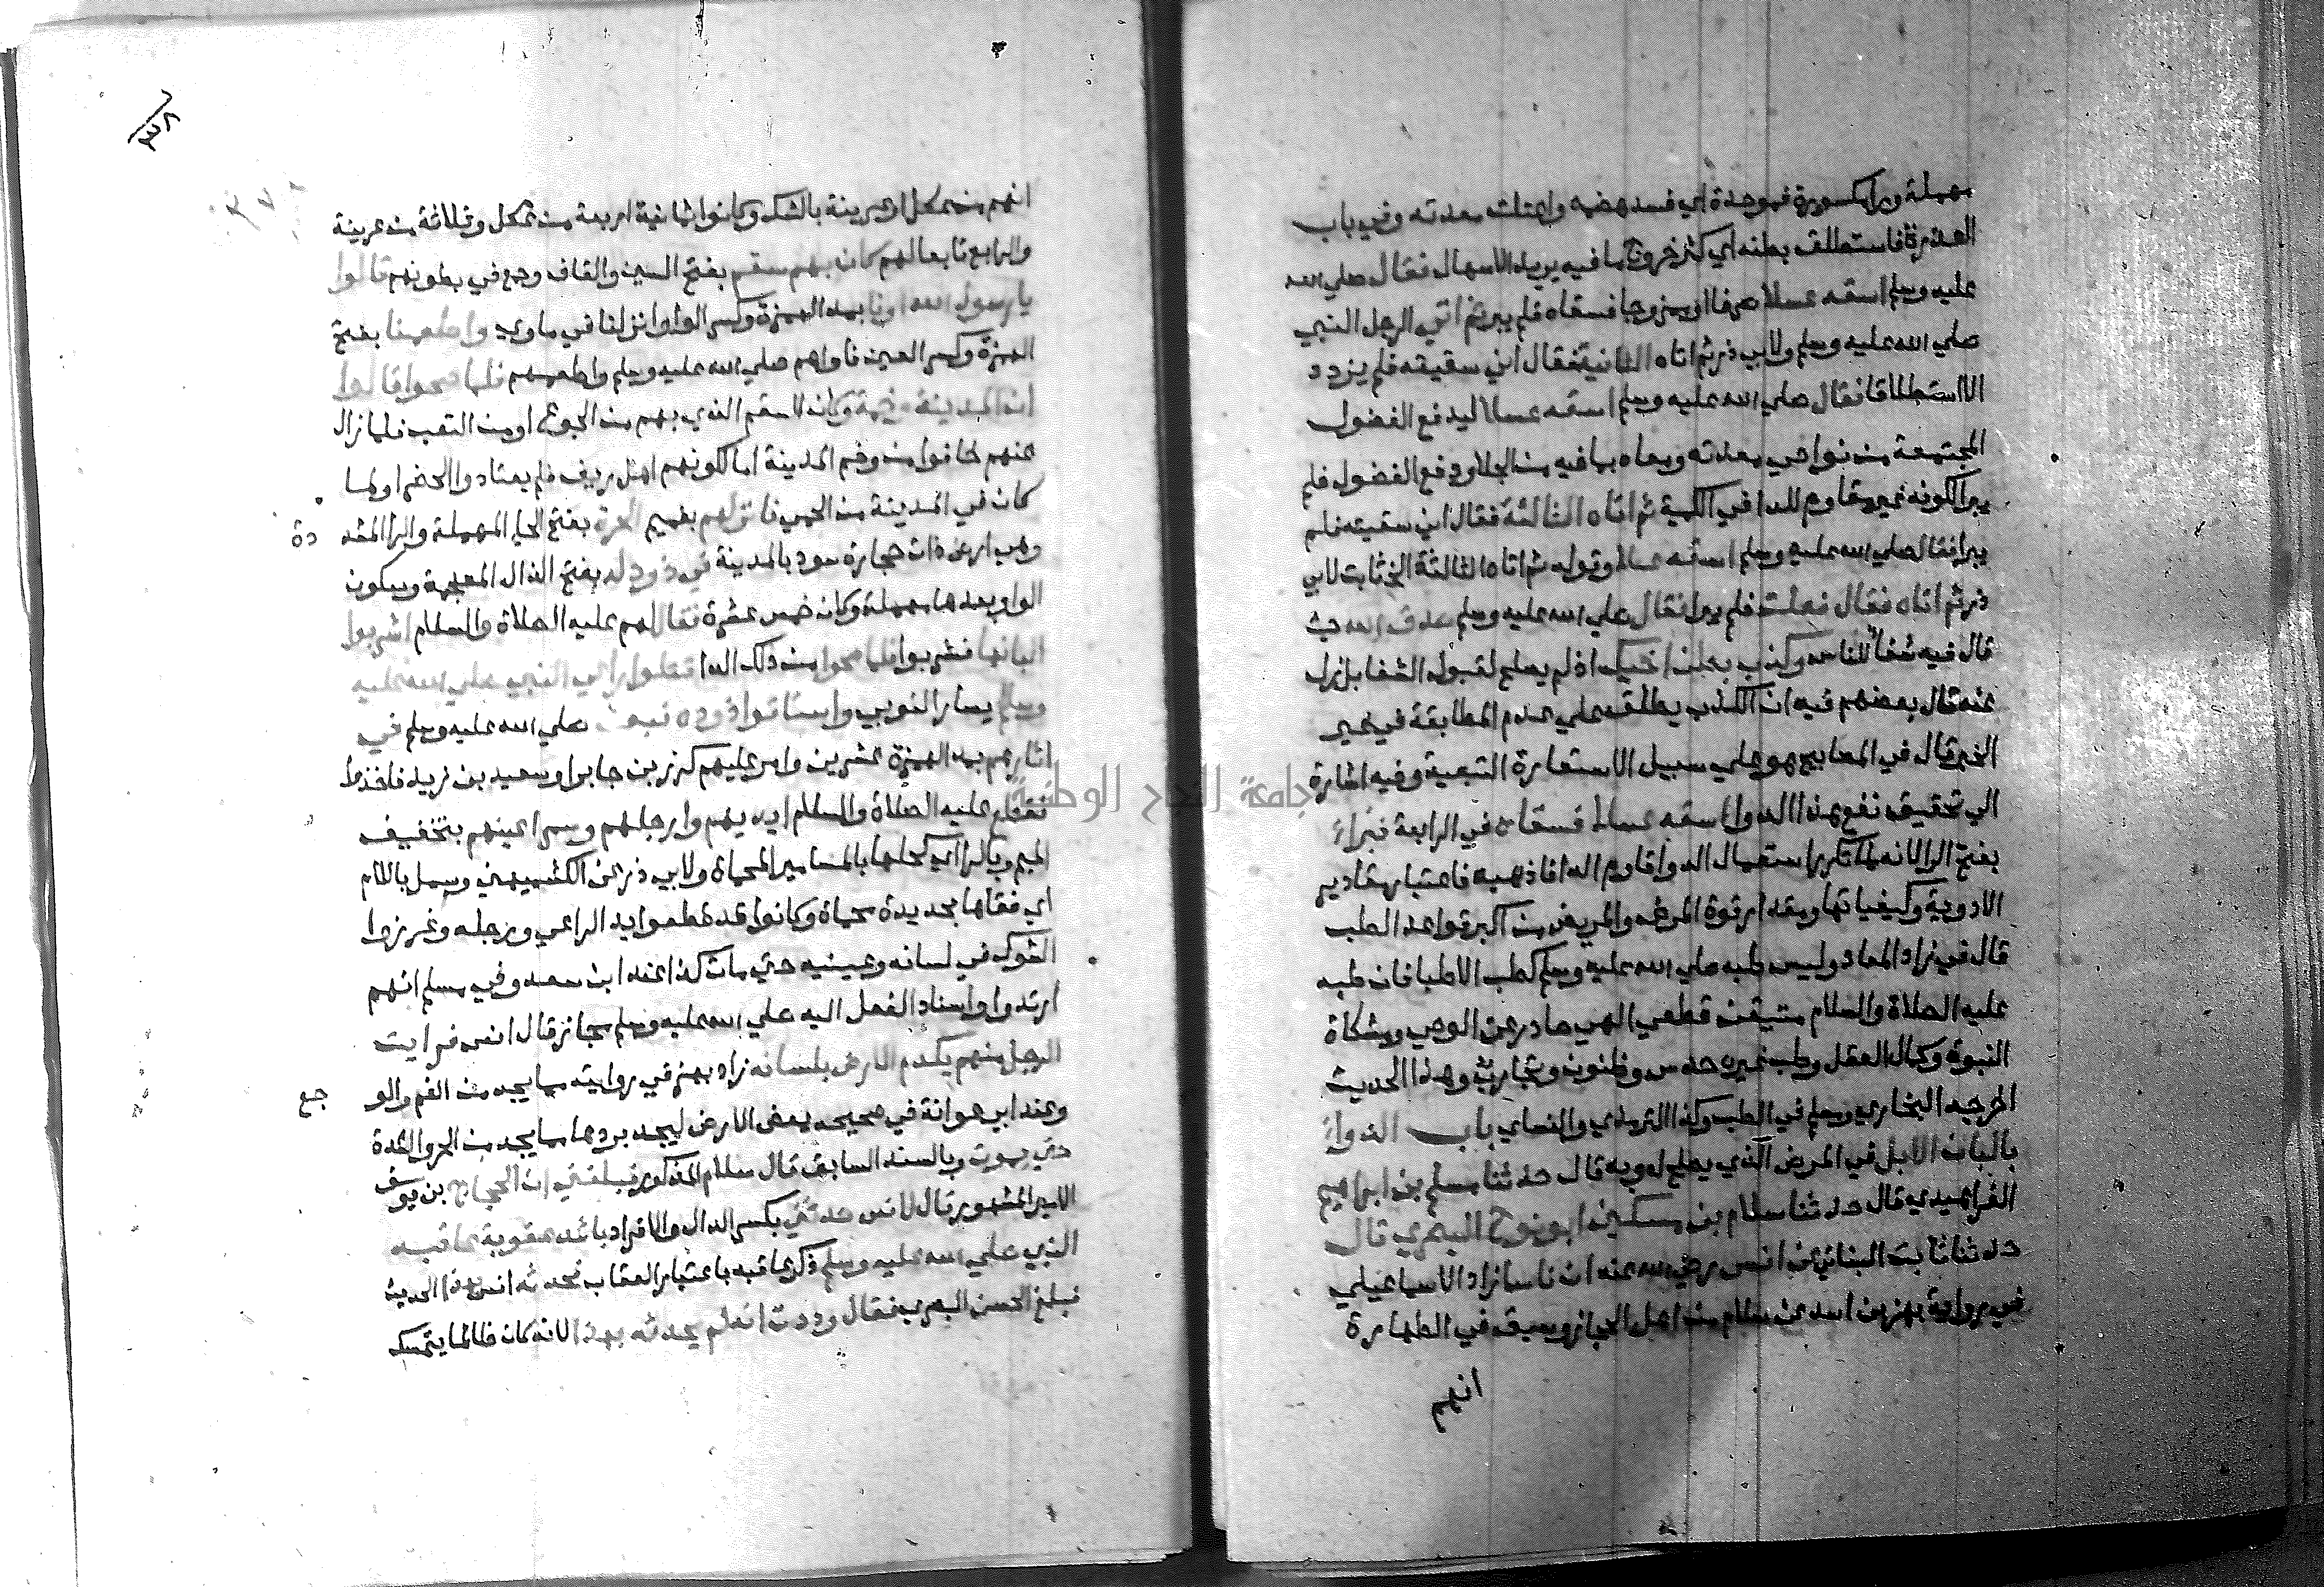 مهملة وراء مكسورة فموحدة اي فسد هضمه واعتلت معدته وفي باب
العذرة فاستطلق بطنه اي كثر خروج ما فيه يريد الاسهال فقال صلي الله
عليه وسلم اسقه عسلا صرفا او ممزوجا فسقاه فلم يبر ثم اتي الرجل النبي
صلي الله عليه وسلم ولابي ذر ثم اتاه الثانية فقال اني سقيته فلم يزدد
الا استطلاقا فقال صلي الله عليه وسلم اسقه عسلا ليدفع الفضول
المجتمعة من نواحي معدته ومعاه بما فيه من الجلا ودفع الفضول فلم
يبرا لكونه غير مقاوم للدا في الكمية ثم اتاه الثالثة فقال اني سقيته فلم
يبرا فقال صلي الله عليه وسلم اسقه عسلا وقوله ثم اتاه الثالثة الخ ثابت لابي
ذر ثم اتاه فقال فعلت فلم يبرا فقال صلي الله عليه وسلم صدق الله حيث
قال فيه شفا للناس وكذب بطن اخيك اذ لم يصلح لقبول الشفا بل زل
عنه قال بعضهم فيه ان الكذب يطلق علي عدم المطابقة في غير
الخبر قال في المصابيح هو علي سبيل الاستعارة التبعية وفيه اشارة
الي تحقيق نفع هذا الدوا اسقه عسلا فسقاه في الرابعة فبراء
بفتح الرا لانه لما تكرر استعمال الدوا قاوم الدا فاذهبه فاعتبار مقادير
الادوية وكيفياتها ومقدار قوة المرض والمريض من اكبر قواعد الطب
قال في زاد المعاد وليس طبه صلي الله عليه وسلم كطب الاطبا فان طبه
عليه الصلاة والسلام متيقن قطعي الهي صادر عن الوحي ومشكاة
النبوة وكمال العقل وطب غيره حدس وظنون وتجارب وهذا الحديث
اخرجه البخاري ومسلم في الطب وكذا الترمذي والنساي باب الدواء
بالبان الابل في المرض الذي يصلح له وبه قال حدثنا مسلم بن ابراهيم
الفراهيدي قال حدثنا سلام بن مسكين ابو نوح البصري قال
حدثنا ثابت البناني عن انس رضي الله عنه ان ناسا زاد الاسماعيلي
في رواية بهز بن اسد عن سلام من اهل الحجاز وسبق في الطهارة
انهم
انهم من عكل او عرينة بالشك وكانوا ثمانية اربعة من عكل وثلاثة من عرينة
والرابع تابعا لهم كان بهم سقم بفتح السين والقاف وجع في بطونهم قالوا
يا رسول الله اونا بمد الهمزة وكسر الواو انزلنا في ماوي واطعمنا بفتح
الهمزة وكسر العين فاواهم صلي الله عليه وسلم واطعمهم فلما صحوا قالوا
ان المدينة وخمة وكان السقم الذي بهم من الجوع او من التعب فلما زال
عنهم خافوا من وخم المدينة اما لكونهم اهل ريف فلم يعتادوا الحضر او لما
كان في المدينة من الحمي فانزلهم بضميم الحرة بفتح الحا المهملة والرا المشددة
وهي ارض ذات حجارة سود بالمدينة في ذود له بفتح الذال المعجمة وسكون
الواو بعدها مهملة وكان خمس عشرة فقال لهم عليه الصلاة والسلام اشربوا
البانها فشربوا فلما صحوا من ذلك الدا قتلوا راعي النبي صلي الله عليه
وسلم يسار النوبي واستاقوا ذوده فبعث صلي الله عليه وسلم في
اثارهم بمد الهمزة عشرين وامر عليهم كرز بن جابر او سعيد بن زيد فاخذوا
فقطع عليه الصلاة والسلام ايديهم وارجلهم وسمر اعينهم بتخفيف
الميم وبالرا اي كحلها بالمسامير المحماة ولابي ذر عن الكشميهني وسمل باللام
اي فقاها بحديدة محماة وكانوا قد قطعوا يد الراعي ورجله وغرزوا
الشوك في لسانه وعينيه حتي مات كذا عند ابن سعد وفي مسلم انهم
ارتدوا واسناد الفعل اليه صلي الله عليه وسلم مجاز قال انس فرايت
الرجل منهم يكدم الارض بلسانه زاد بهز في روايته مما يجد من الغم والوجع
وعند ابي عوانة في صحيحه يعض الارض ليجد بردها مما يجد من الحر والشدة
حتي يموت وبالسند السابق قال سلام المذكور فبلغني ان الحجاج بن يوسف
الامير المشهور قال لانس حدثني بكسر الدال والافراد باشد عقوبة عاقبه
النبي صلي الله عليه وسلم ذكر عاقبه باعتبار العقاب فحدثه انس بهذا الحديث
فبلغ الحسن البصري فقال وددت انه لم يحدثه بهذا لانه كان ظالما يتمسك
جامعة النجاح الوطنية